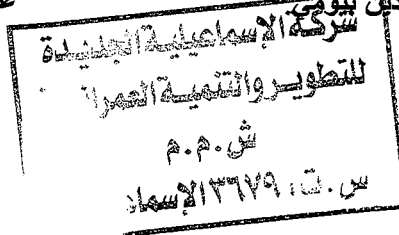 دين بيومى
شركة الإسماعيلية الجديدة
للتطوير والتنمية العمرا
ش.م.م
س.ت: ١٣٦٧٩ الإسما